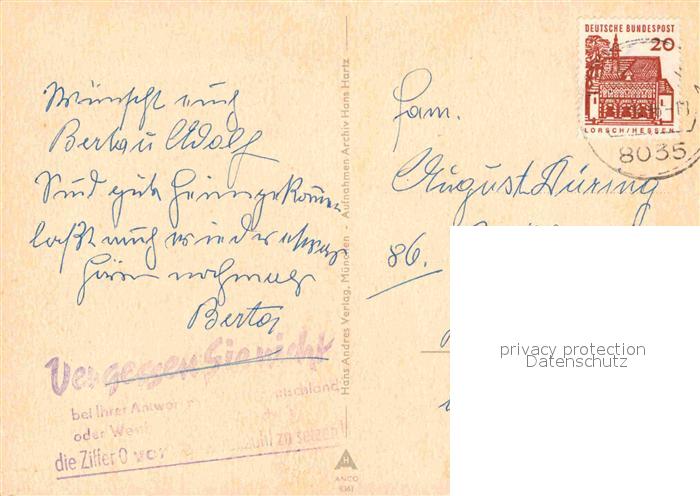 Wünscht euch
Berta u Adolf
Sind gut Heimgekommen
laßt auch wieder etwas
hören nochmals
Berta
Vergessen Sie nicht
bei Ihrer Antwort
oder
die Ziffer 0 vor zu setzen!
Hans Andres Verlag, München - Aufnahmen Archiv Hans Hartz
ANCO
Fam.
August Düring
86.
DEUTSCHE BUNDESPOST
20
LORSCH/HESSEN
8035
privacy protection
Datenschutz